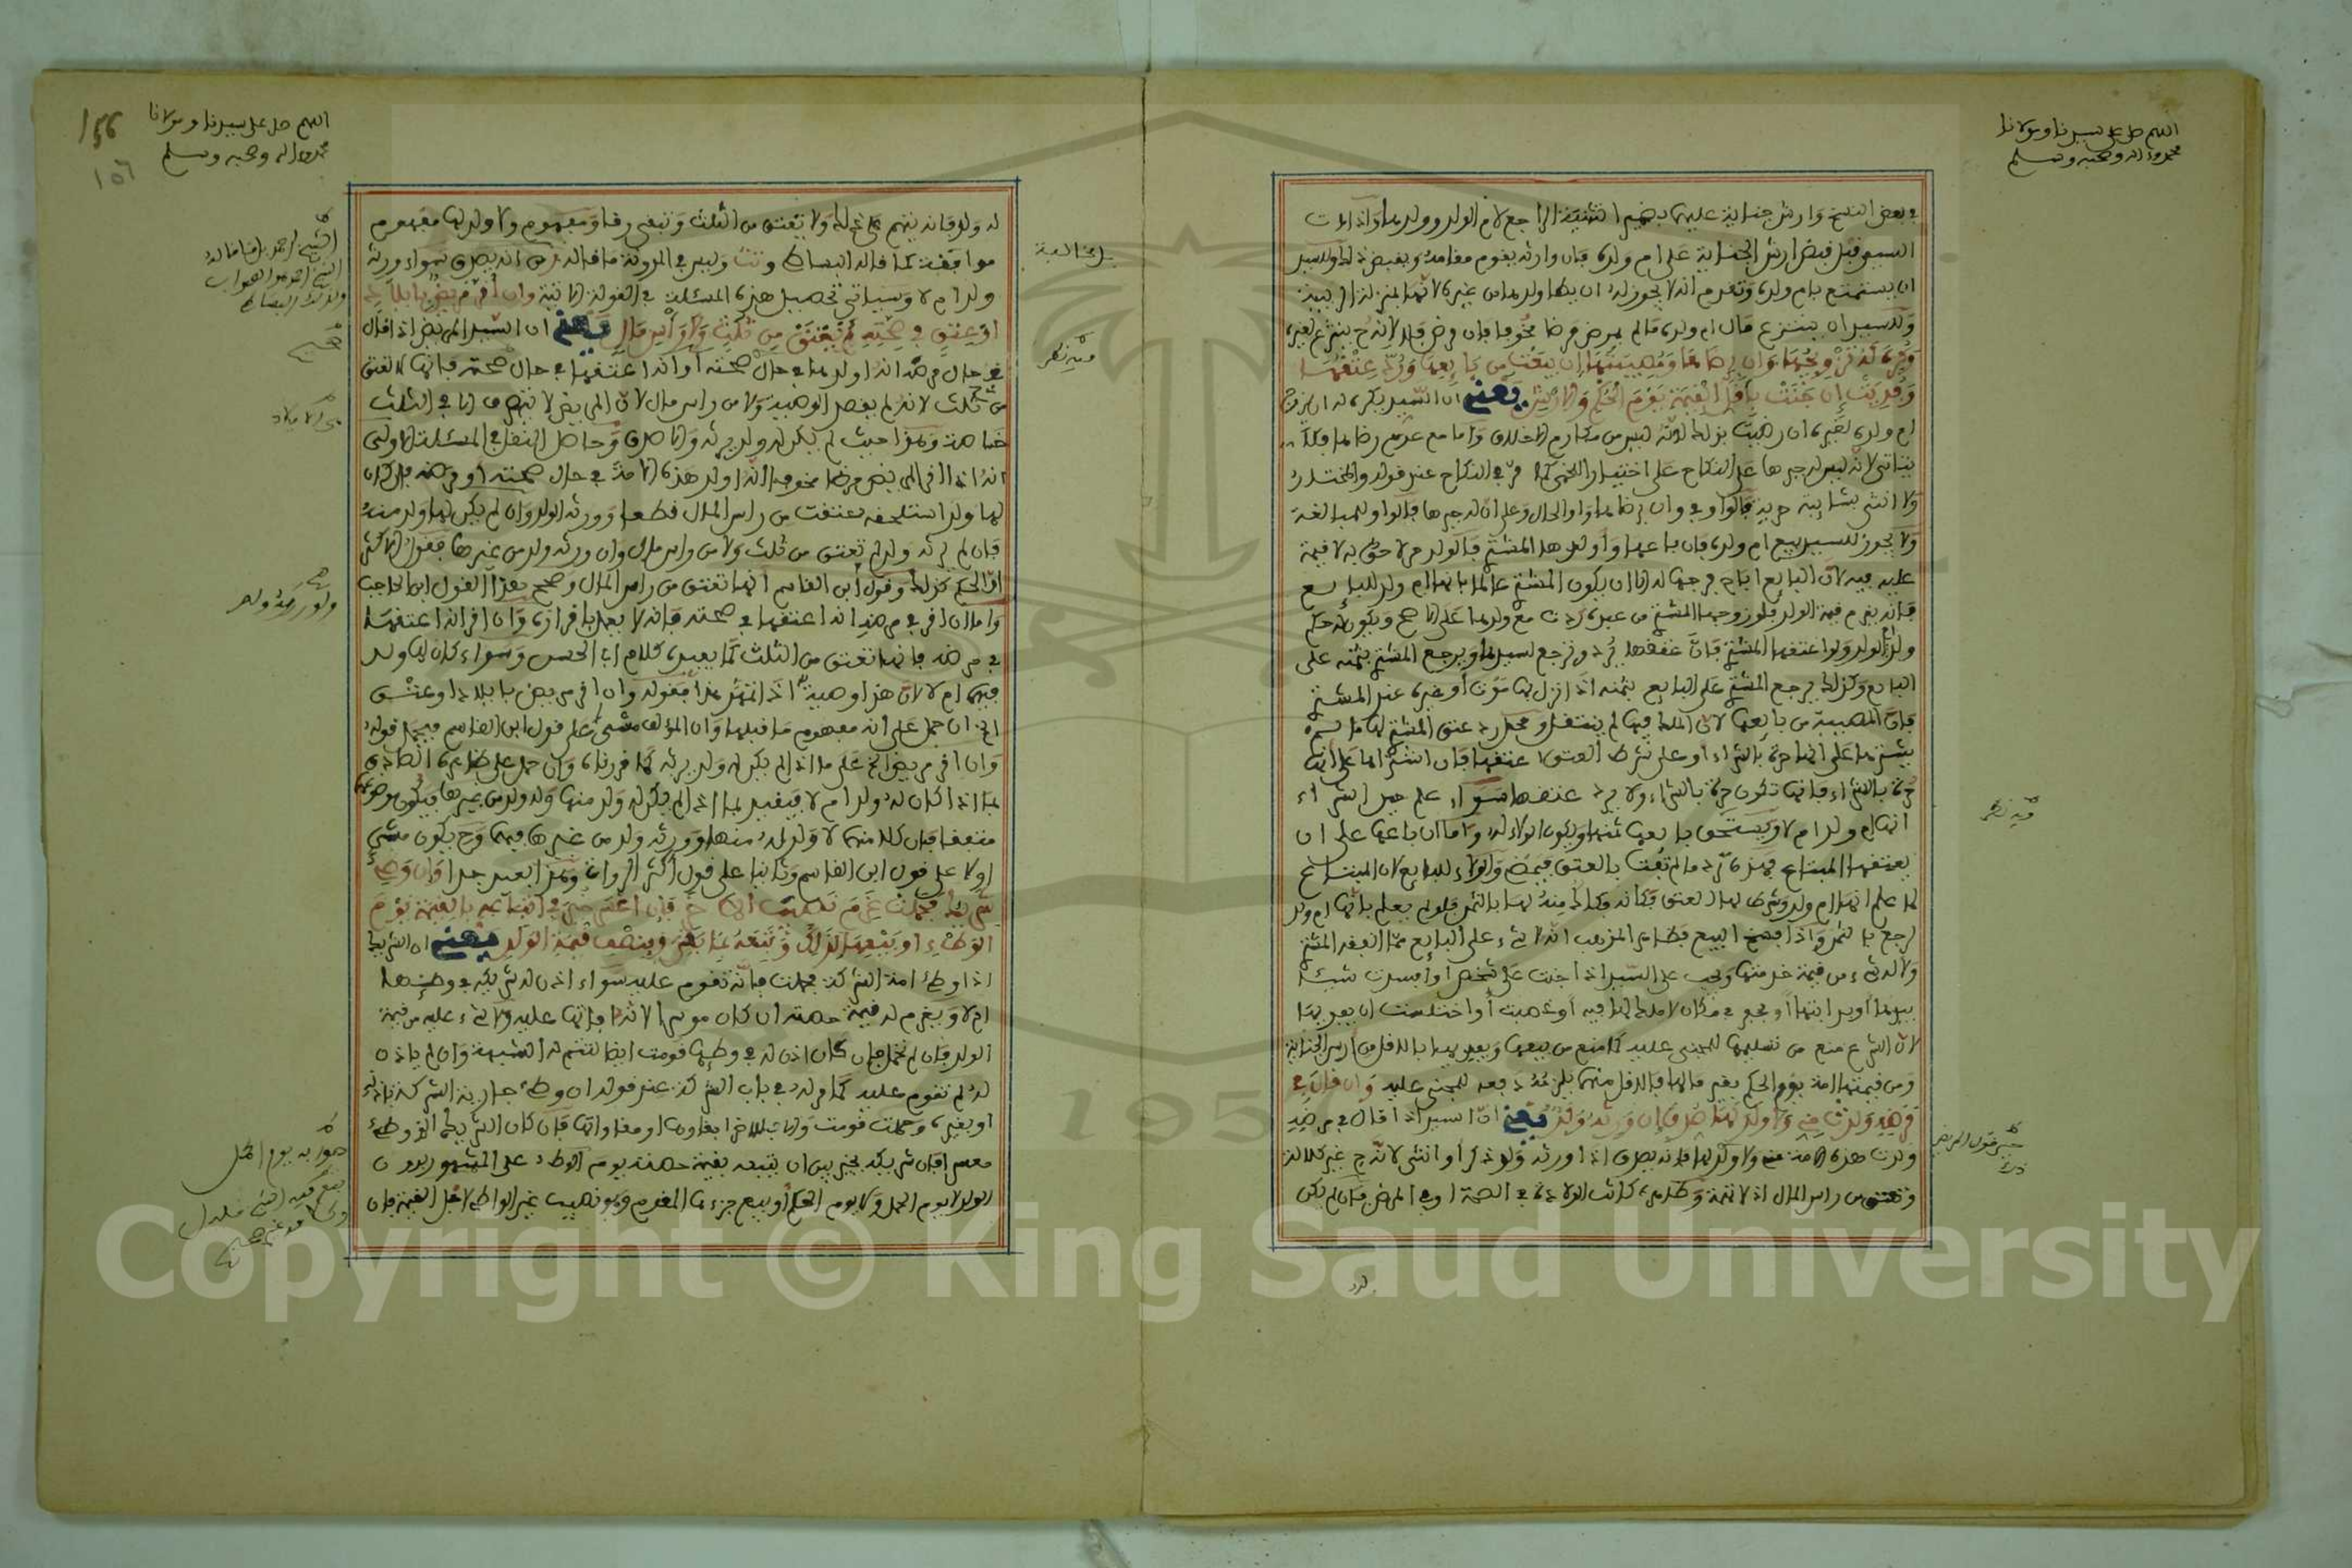 اللهم صل على سيدنا ومولانا
محمد وءاله وصحبه وسلم
في بعض النسخ وارش جناية عليهما بضمير التثنية الراجع لام الولد وولدها واذا مات
السيد قبل قبض ارش الجناية على ام ولده فان وارثه يقوم مقامه ويقبض ذلك وللسيد
ان يستمتع بام ولده وتقدم انه لا يجوز له ان يطا ولدها من غيره لانها بمنزلة الربيبة
وللسيد ان ينتزع مال ام ولده ما لم يمرض مرضا مخوفا فان مرض فلا لانه ح ينتزع لغيره
وكره له تزويجها وان برضاها ومصيبتها ان بيعت من بايعها ورد عتقها
وفديت ان جنت باقل القيمة يوم الحكم والارش يعني ان السيد يكره له ان يزوج
ام ولده لغيره ان رضيت بذلك لانه ليس من مكارم الاخلاق واما مع عدم رضاها فلا
يتاتى لانه ليس له جبرها على النكاح على اختيار اللخمي كما مر في النكاح عند قوله والمختار
ولا انثى بشايبة حرية فالواو في وان برضاها واو الحال وعلى ان له جبرها فالواو للمبالغة
ولا يجوز للسيد بيع ام ولده فان باعها واولدها المشتري فالولد حر لاحق به لا قيمة
عليه فيه لان البايع اباح فرجها له الا ان يكون المشتري عالما بانها ام ولد للبايع
فانه يغرم قيمة الولد فلو زوجها المشتري من عبده ردت مع ولدها على الاصح ويكون له حكم
ولد ام الولد ولو اعتقها المشتري فان عتقها يرد وترجع لسيدها ويرجع المشتري بثمنه على
البايع وكذلك يرجع المشتري على البايع بثمنه اذا نزل بها موت او غيره عند المشتري
فان المصيبة من بايعها لان الملك فيها لم ينتقل ومحل رد عتق المشتري لها ما لم
يشترها على انها حرة بالشراء او على شرط العتق اعتقها فان اشتراها على انها
حرة بالشراء فانها تكون حرة بالشراء ولا يرد عتقها سواء علم حين الشراء
انها ام ولد ام لا ويستحق بايعها ثمنها ويكون الولاء له واما ان باعها على ان
يعتقها المبتاع فهذه ترد ما لم تفت بالعتق فيمضي والولاء للبايع لان المبتاع
لما علم انها ام ولد وشرط لها العتق فكانه فكاك منه لها بالثمن فلو لم يعلم بانها ام ولد
لرجع بالثمن واذا فسخ البيع فظاهر المذهب انه لا شيء على البايع مما انفقه المشتري
ولا له شيء من قيمة خدمتها ويجب على السيد اذا جنت على شخص او افسدت شيئا
بيدها او بدابتها او بحفر في مكان لا ملك لها فيه او غصبت او اختلست ان يفديها
لان الشرع منع من تسليمها للمجني عليه كما منع من بيعها ويفديها بالاقل من ارش الجناية
ومن قيمتها امة يوم الحكم بغير مالها فالاقل منهما يلزمه دفعه للمجني عليه وان قال في
مرضه ولدت مني ولا ولد لها صدق ان ورثه ولد يعني ان السيد اذا قال في مرضه
ولدت هذه الامة مني ولا ولد لها فانه يصدق اذا ورثه ولد ذكرا او انثى لانه ح غير كلالة
وتعتق من راس المال اذ لا تهمة وظاهره كانت الولادة في الصحة او في المرض فان لم يكن
له
فيه نظر
اللهم صل على سيدنا ومولانا
محمد وءاله وصحبه وسلم
156
١٥٦
له ولد فانه يتهم على ذلك ولا تعتق من الثلث وتبقى رقا ومفهوم ولا ولد لها مفهوم
موافقة كما قاله البساطي وتت وليس في المدونة ما قاله من انه يصدق سواء ورثه
ولد ام لا وسياتي تحصيل هذه المسئلة في القولة الاتية وان اقر مريض بايلاد
او بعتق في صحته لم تعتق من ثلث ولا راس مال يعني ان السيد المريض اذا قال
في حال مرضه انه اولدها في حال صحته او انه اعتقها في حال صحته فانها لا تعتق
من ثلث لانه لم يقصد الوصية ولا من راس مال لان المريض لا يتصرف الا في الثلث
خاصة وهذا حيث لم يكن له ولد يرثه والا صدق وحاصل النقل في المسئلة الاولى
انه اذا اقر المريض مرضا مخوفا انه اولد هذه الامة في حال صحته او مرضه فان كان
لها ولد استلحقه عتقت من راس المال قطعا وورثه الولد وان لم يكن لها ولد منه
فان لم يرثه ولد لم تعتق من ثلث ولا من راس مال وان ورثه ولد من غيرها فقول الاكثر
ان الحكم كذلك وقول ابن القاسم انها تعتق من راس المال وصحح هذا القول ابن الحاجب
واما ان اقر في مرضه انه اعتقها في صحته فانه لا يعمل باقراره وان اقر انه اعتقها
في مرضه فانها تعتق من الثلث كما يفيده كلام ابي الحسن وسواء كان لها ولد
فيهما ام لا لان هذا وصية اذا تقرر هذا فقوله وان اقر مريض بايلاد او عتق
الخ ان حمل على انه مفهوم ما قبلها وان المؤلف مشى على قول ابن القاسم فيحمل قوله
وان اقر مريض الخ على ما اذا لم يكن له ولد يرثه كما قررناه وان حمل على ظاهره الصادق
بما اذا كان له ولد ام لا فيقيد بما اذا لم يكن له ولد منها وله ولد من غيرها فيكون موضوعهما
متفقا فان كلا منهما لا ولد له منها وورثه ولد من غيرها فيهما وح يكون مشى
اولا على قول ابن القاسم وثانيا على قول اكثر الرواة وهذا بعيد جدا وان وطئ
شريك فحملت غرم نصيب الاخر فان اعسر خير في اتباعه بالقيمة يوم
الوطء او بيعها لذلك وتبعه بما بقي وبنصف قيمة الولد يعني ان الشريك
اذا وطئ امة الشركة فحملت فانها تقوم عليه سواء اذن له شريكه في وطئها
ام لا ويغرم له قيمة حصته ان كان موسرا لانه افاتها عليه ولا شيء عليه من قيمة
الولد فان لم تحمل فان كان اذن له في وطئها قومت ايضا لتتم له الشبهة وان لم ياذن
له لم تقوم عليه كما مر له في باب الشركة عند قوله وان وطئ جارية للشركة باذنه
او بغيره وحملت قومت والا فللاخر ابقاؤها او مقاواتها فان كان الشريك الذي وطئ
معسرا فان شريكه يخير بين ان يتبعه بقيمة حصته يوم الوطء على المشهور بدون
الولد لا يوم الحمل ولا يوم الحكم او يبيع جزءها المقوم وهو نصيب غير الواطئ لاجل القيمة فان
فيه نظر